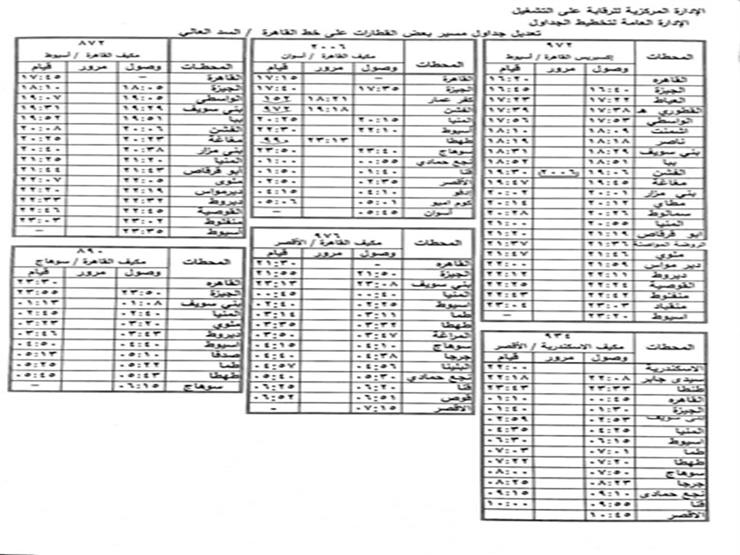 الإدارة المركزية للرقابة على التشغيل
الإدارة العامة لتخطيط الجداول
تعديل جداول مسير بعض القطارات على خط القاهرة / السد العالي
٩٧٢
المحطات إكسبريس القاهرة / أسيوط
وصول مرور قيام
القاهرة ١٦:٢٠
الجيزة ١٦:٤٠ ١٦:٤٥
العياط ١٧:٢٢ ١٧:٢٣
القطوري هـ ١٧:٣٨ ١٧:٣٩
الواسطي ١٧:٥٣ ١٧:٥٦
اشمنت ١٨:٠٩ ١٨:١٠
ناصر ١٨:١٨ ١٨:١٩
بني سويف ١٨:٢٩ ١٨:٣١
ببا ١٨:٥١ ١٨:٥٢
الفشن ١٩:٠٦ (٢٠٠٦) ١٩:٣٠
مغاغة ١٩:٤٥ ١٩:٤٧
بني مزار ٢٠:٠١ ٢٠:٠٢
مطاي ٢٠:١٢ ٢٠:١٤
سمالوط ٢٠:٢٦ ٢٠:٢٨
المنيا ٢٠:٥٥ ٢١:٠٠
ابو قرقاص ٢١:١٩ ٢١:٢٠
الروضة المواصلة ٢١:٣٦ ٢١:٣٧
ملوي ٢١:٤٦ ٢١:٤٧
دير مواس ٢١:٥٩ ٢٢:٠٠
ديروط ٢٢:١١ ٢٢:١٢
القوصية ٢٢:٢٤ ٢٢:٢٥
منفلوط ٢٢:٤٢ ٢٢:٤٣
منقباد ٢٣:٠٣ ٢٣:٠٤
اسيوط ٢٣:٢٠ –
٢٠٠٦
المحطات مكيف القاهرة / أسوان
وصول مرور قيام
القاهرة – ١٧:١٥
الجيزة ١٧:٣٥ ١٧:٤٠
كفر عمار ١٨:٢١ ١٥٢
الفشن ١٩:١٨ ٩٧٢
المنيا ٢٠:١٥ ٢٠:٢٥
أسيوط ٢٢:١٠ ٢٢:٣٠
طهطا ٢٣:١٣ ٩٩٠
سوهاج ٢٣:٤٠ ٢٣:٥٠
نجع حمادي ٠٠:٥٥ ٠١:٠٠
قنا ٠١:٤٠ ٠١:٥٠
الأقصر ٠٢:٣٥
إدفو ٠٤:١٠ ٠٤:١٥
كوم امبو ٠٥:٠١
أسوان ٠٥:٤٥ –
٨٧٢
المحطات مكيف القاهرة / أسيوط
وصول مرور قيام
القاهرة – ١٧:٤٥
الجيزة ١٨:٠٥ ١٨:١٠
الواسطي ١٩:٠٥ ١٩:٠٧
بني سويف ١٩:٢٩ ١٩:٣١
ببا ١٩:٥١ ١٩:٥٢
الفشن ٢٠:٠٦ ٢٠:٠٨
مغاغة ٢٠:٢٣ ٢٠:٢٥
بني مزار ٢٠:٣٨ ٢٠:٤٠
المنيا ٢١:٢٠ ٢١:٢٥
أبو قرقاص ٢١:٤٣ ٢١:٤٤
ملوي ٢٢:٠٥ ٢٢:٠٧
ديرمواس ٢٢:١٩ ٢٢:٢٠
ديروط ٢٢:٣٢ ٢٢:٣٣
القوصية ٢٢:٤٥ ٢٢:٤٦
منفلوط ٢٣:٠٢ ٢٣:٠٣
أسيوط ٢٣:٣٥ –
٩٧٦
المحطات مكيف القاهرة / الأقصر
وصول مرور قيام
القاهرة – ٢١:٣٠
الجيزة ٢١:٥٠ ٢١:٥٥
بني سويف ٢٣:٠٨ ٢٣:١٣
المنيا ٠٠:٤٠ ٠٠:٤٥
أسيوط ٠٢:٢٥ ٠٢:٤٠
طما ٠٣:١١ ٠٣:١٤
طهطا ٠٣:٣٢ ٠٣:٣٥
المراغة ٠٣:٤٧ ٠٣:٥٠
سوهاج ٠٤:١٠ ٠٤:١٥
جرجا ٠٤:٣٨ ٠٤:٤٠
البلينا ٠٤:٥٦ ٠٤:٥٧
نجع حمادي ٠٥:٣٠
قنا ٠٦:٢٠ ٠٦:٢٥
قوص ٠٦:٥١ ٠٦:٥٢
الأقصر ٠٧:١٥ -
٨٩٠
المحطات مكيف القاهرة / سوهاج
وصول مرور قيام
القاهره ٢٣:٣٠
الجيزة ٢٣:٥٠ ٢٣:٥٥
بني سويف ٠١:٠٨ ٠١:١٣
المنيا ٠٢:٤٠ ٠٢:٤٥
ملوي ٠٣:٢٠ ٠٣:٢٣
ديروط ٠٣:٤٣ ٠٣:٤٦
أسيوط ٠٤:٤٠
صدفا ٠٥:١٠ ٠٥:١٣
طما ٠٥:٢٢ ٠٥:٢٥
طهطا ٠٥:٤٣ ٠٥:٤٥
سوهاج ٠٦:١٥ –
٩٣٤
المحطات مكيف الاسكندرية / الأقصر
وصول مرور قيام
الاسكندرية ٢٢:٠٠
سيدي جابر ٢٢:٠٨ ٢٢:١٨
طنطا ٢٣:٣٣ ٢٣:٤٣
القاهره ٠٠:٤٥ ٠١:١٠
الجيزة ٠١:٣٠ ٠١:٤٠
بني سويف ٠٢:٥٣ ٠٢:٥٩
المنيا ٠٤:٢٥ ٠٤:٣٥
اسيوط ٠٦:١٥ ٠٦:٣٠
طما ٠٧:٠١ ٠٧:٠٣
طهطا ٠٧:٢٠ ٠٧:٢٢
سوهاج ٠٧:٥٠ ٠٨:٠٠
جرجا ٠٨:٢٣ ٠٨:٢٥
نجع حمادى ٠٩:١٠ ٠٩:١٥
قنا ١٠:٠٠
الأقصر ١٠:٤٥